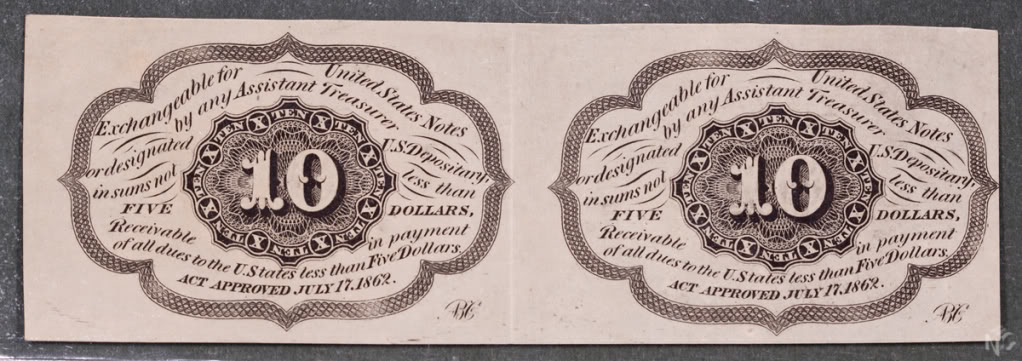 Exchangeable for United States Notes
by any Assistant Treasurer
or designated U.S. Depositary,
in sums not less than
FIVE DOLLARS,
Receivable in payment
of all dues to the U. States less than Five Dollars.
ACT APPROVED JULY 17, 1862.
TEN X TEN X TEN X TEN X TEN X TEN X TEN X TEN X
10
Exchangeable for United States Notes
by any Assistant Treasurer
or designated U.S. Depositary,
in sums not less than
FIVE DOLLARS,
Receivable in payment
of all dues to the U. States less than Five Dollars.
ACT APPROVED JULY 17, 1862.
TEN X TEN X TEN X TEN X TEN X TEN X TEN X TEN X
10